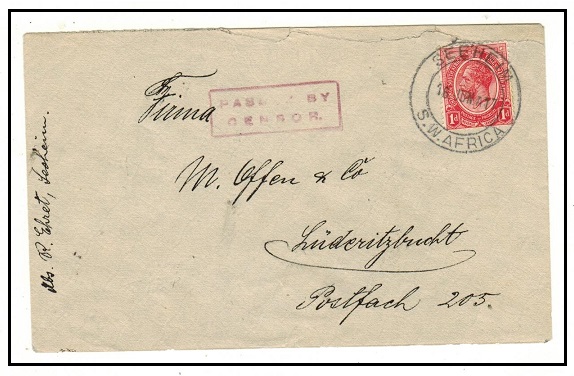 SEEHEIM
S.W. AFRICA
1d 1d
PASSED BY
CENSOR.
Firma
M. Offen & Co
Lüderitzbucht
Postfach 205.
Abs. R. Ehret, Seeheim.